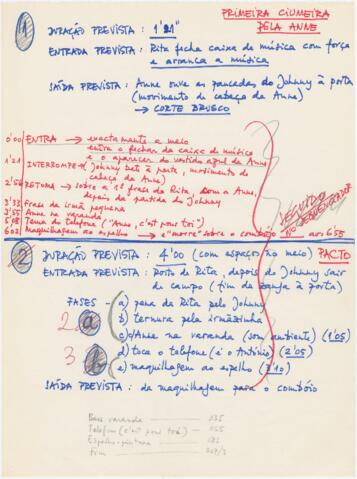 PRIMEIRA CIUMEIRA
PELA ANNE
1 DURAÇÃO PREVISTA : 1'21"
ENTRADA PREVISTA : Rita fecha caixa de música com força
e arranca a música
SAÍDA PREVISTA : Anne ouve as pancadas do Johnny à porta
(movimento de cabeça da Anne)
→ CORTE BRUSCO
0'00 ENTRA → exactamente a meio
entre o fechar da caixa de música
e o aparecer do vestido azul da Anne
1'21 INTERROMPE (Johnny bate à porta, movimento de
cabeça da Anne)
RETOMA → sobre a 1ª frase da Rita, com a Anne,
depois da partida do Johnny
3'33 Frase da irmã pequena
Anne na varanda
Tema do telefone ("Anne, c'est pour toi")
maquilhagem ao espelho → e "morre" sobre o comboio, no aos 655
SEGUNDO
2 DURAÇÃO PREVISTA : 4'00 (com espaço no meio) PACTO
ENTRADA PREVISTA : Porto de Rita, depois do Johnny sair
de campo (fim da zanga à porta)
FASES - a) pena da Rita pelo Johnny
2 a b) ternura pela irmãzinha
c) Anne na varanda (som ambiente) (1'05)
3 b d) toca o telefone (é o António) (2'05)
e) maquilhagem ao espelho (3'10)
SAÍDA PREVISTA : da maquilhagem para o comboio
varanda 035
Telefone (c'est pour toi) 055
Espelho-pintura
fim